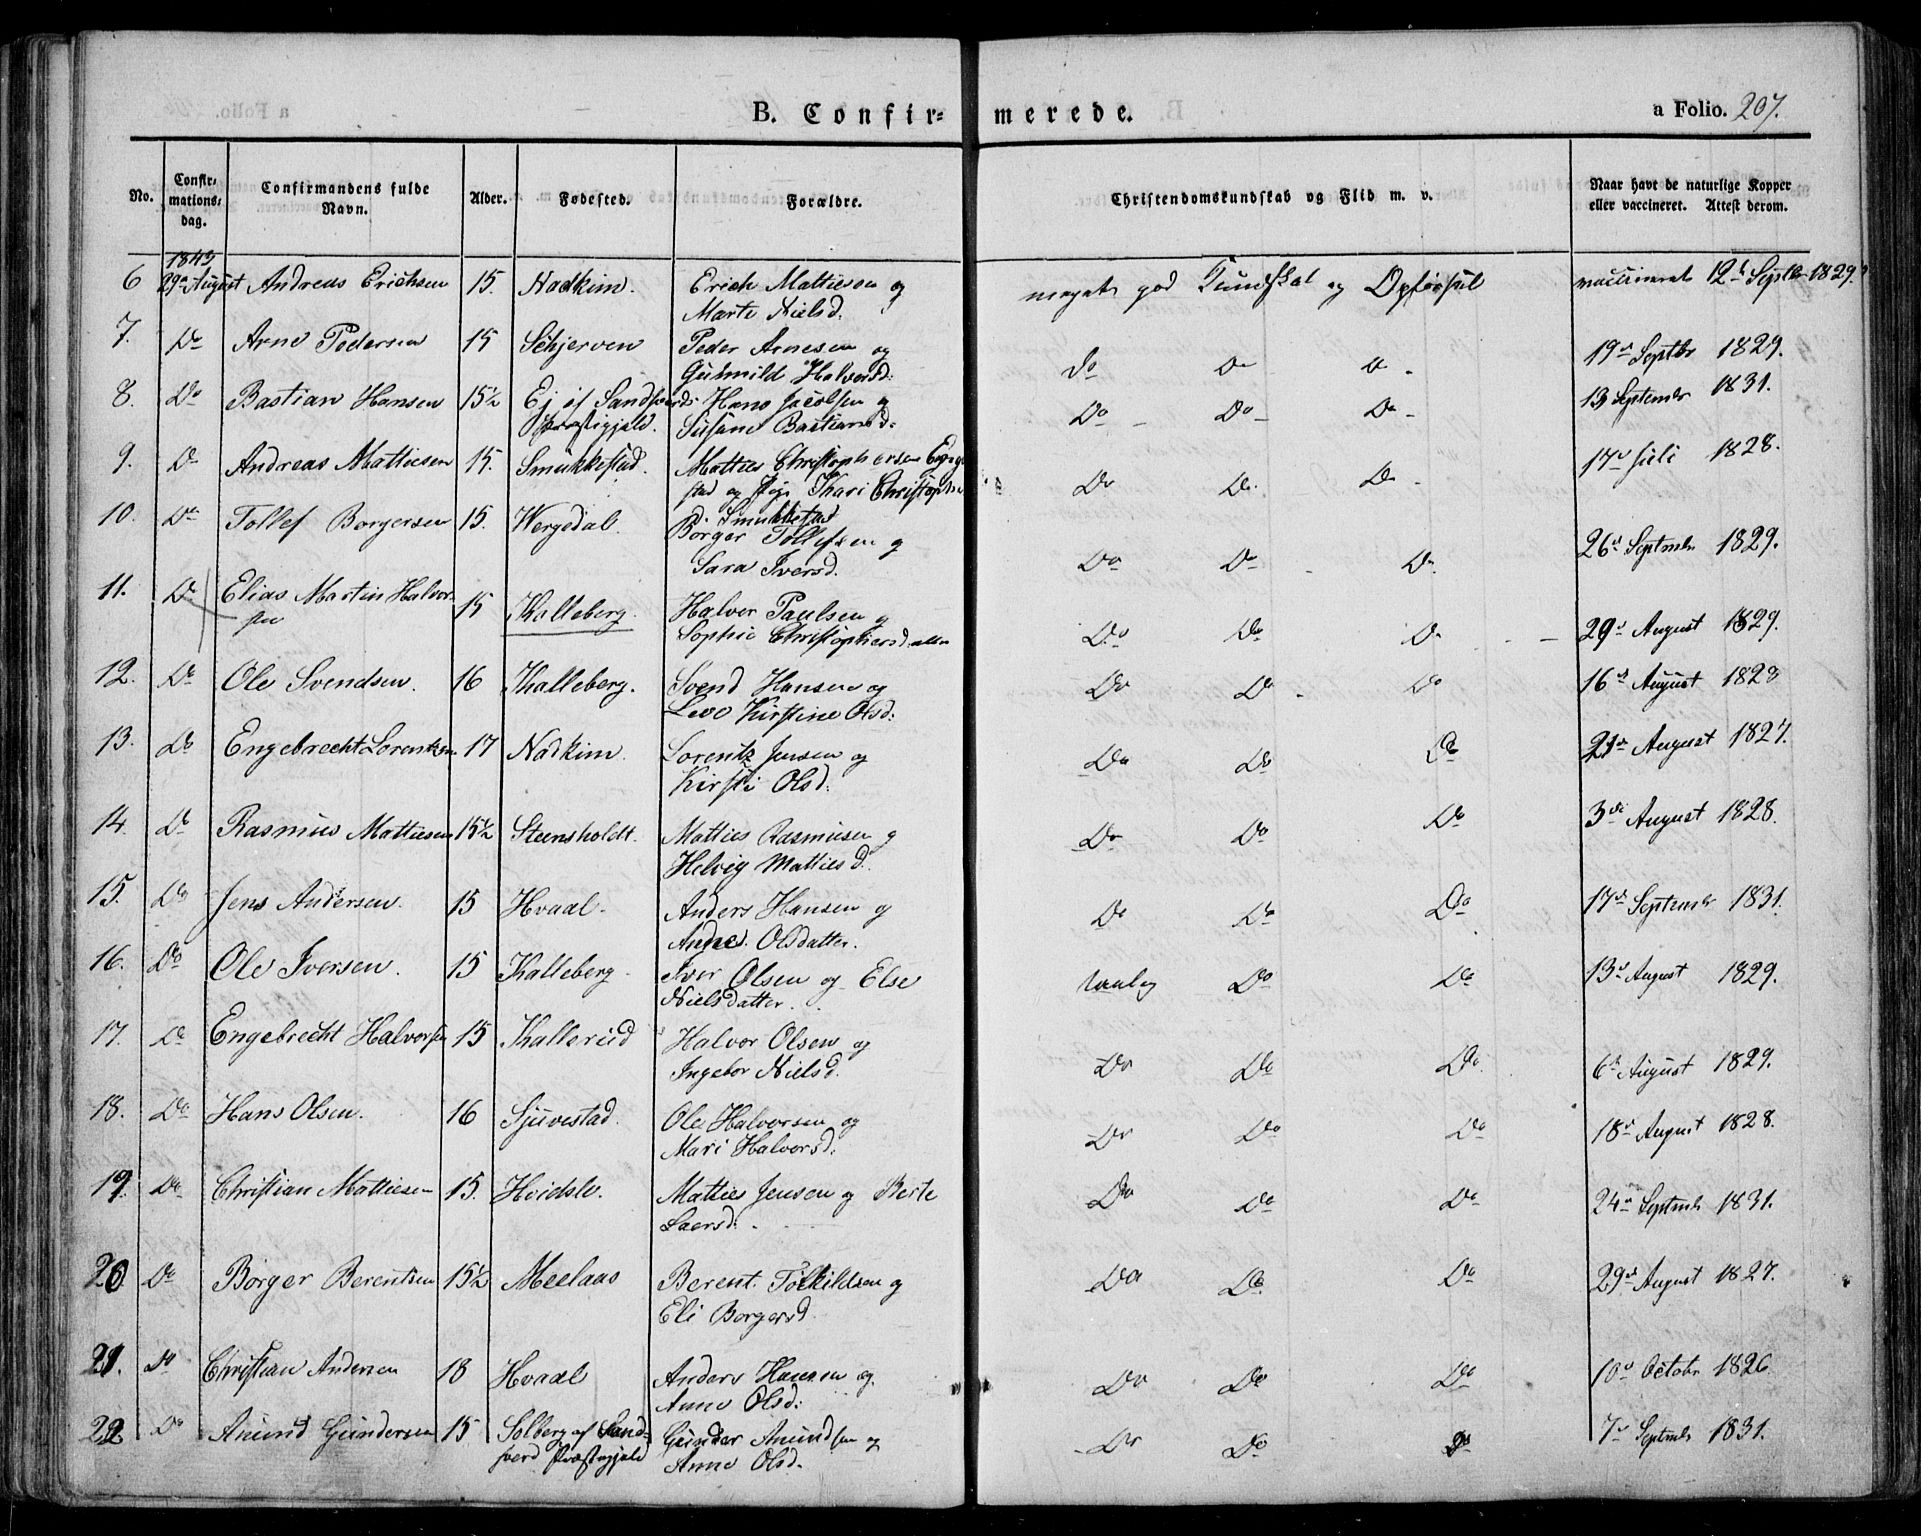 B. Confir= merede.
a Folio. 207.
No. Confirmations= dag. Confirmandens fulde Navn. Alder. Fødested. Forældre. Christendomskundskab og Flid m. v. Naar havt de naturlige Kopper eller vaccineret. Attest derom.
1843
6 29de August Andreas Erichsen 15. Nadkim. Erich Mattiesen og meget god Kundskab og Opførsel vaccineret 12t Septbr 1829
Marte Nielsd.
7. Do Arne Pedersen 15 Schjerven Peder Arnesen og Do Do Do 19d Septbr 1829.
Gunnild Halvorsd:
8. Do Bastian Hansen 15½ Ej af Sandhverds Hans Jacobsen og Do Do Do 13 Septembr 1831.
Præstegjeld. Susane Bastiansd:
9. Do Andreas Mattiesen 15. Smukkestad. Matties Christophersen 17d Juli 1828.
stad og Pige Kari Christoph Do Do Do
Smukkestad
10. Do Tollef Borgersen 15. Wergedal. Borger Tollefsen og Do Do Do 26d Septembr 1829.
Sara Iversd.
11. Do Elias Martin Halvor= 15 Kalleberg. Halvor Paulsen og Do Do Do 29d August 1829.
sen Sophie Christophersdatter
12. Do Ole Svendsen. 16 Kalleberg. Svend Hansen og Do Do Do 16d August 1828
Kirstine Olsd:
13. Do Engebrecht Lorentzen 17 Nadkim. Lorentz Jensen og Do Do Do 21d August 1827.
Kirsti Olsd:
14. Do Rasmus Mattiesen 15½ Steensholdt. Matties Rasmusen og Do Do Do 3die August 1828.
Helvig Mattiesd.
15. Do Jens Andersen. 15 Hvaal. Anders Hansen og Do Do Do 17d Septembr 1831.
Olsdatter.
16. Do Ole Iversen. 15 Kalleberg Iver Olsen og Else Do Do 13d August 1829.
Nielsdatter.
17. Do Engebrecht Halvorsen 15 Kallerud Halvor Olsen og Do Do Do 6d August 1829.
Ingebor Nielsd.
18. Do Hans Olsen. 16 Sjuvestad. Ole Halvorsen og Do Do Do 18d August 1828.
Mari Halvorsd:
19. Do Christian Mattiesen 15. Hvidslv. Matties Jensen og Berte Do Do Do 24d Septembr 1831.
Laersd:
20 Do Borger Berentsen 15½ Meelaas Berent Tolkildsen og Do Do Do 29d August 1827.
Eli Borgersd
21. Do Christian Andersen 18 Hvaal Anders Hansen og Do Do Do 10d Octobr 1826
Anne Olsd:
22 Do Anund Gundersen 15 Solberg af Sand= Gunder Anundsen og Do Do Do 7d Septembr 1831.
sverd Præstegjeld Anne Olsd.